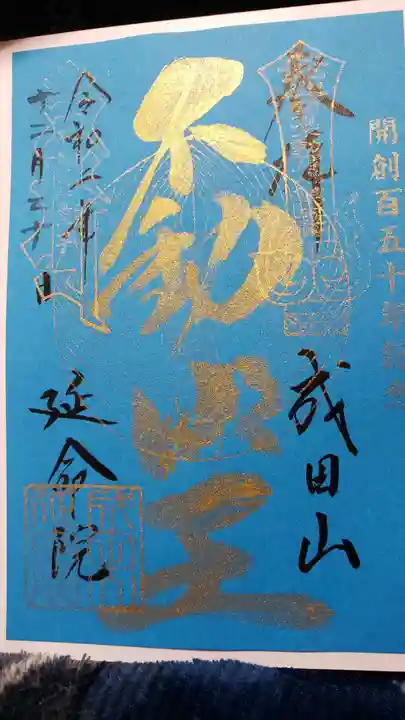 開創百五十年記念
奉拝
成田山
不動明王
令和二年
十二月三十一日
延命院